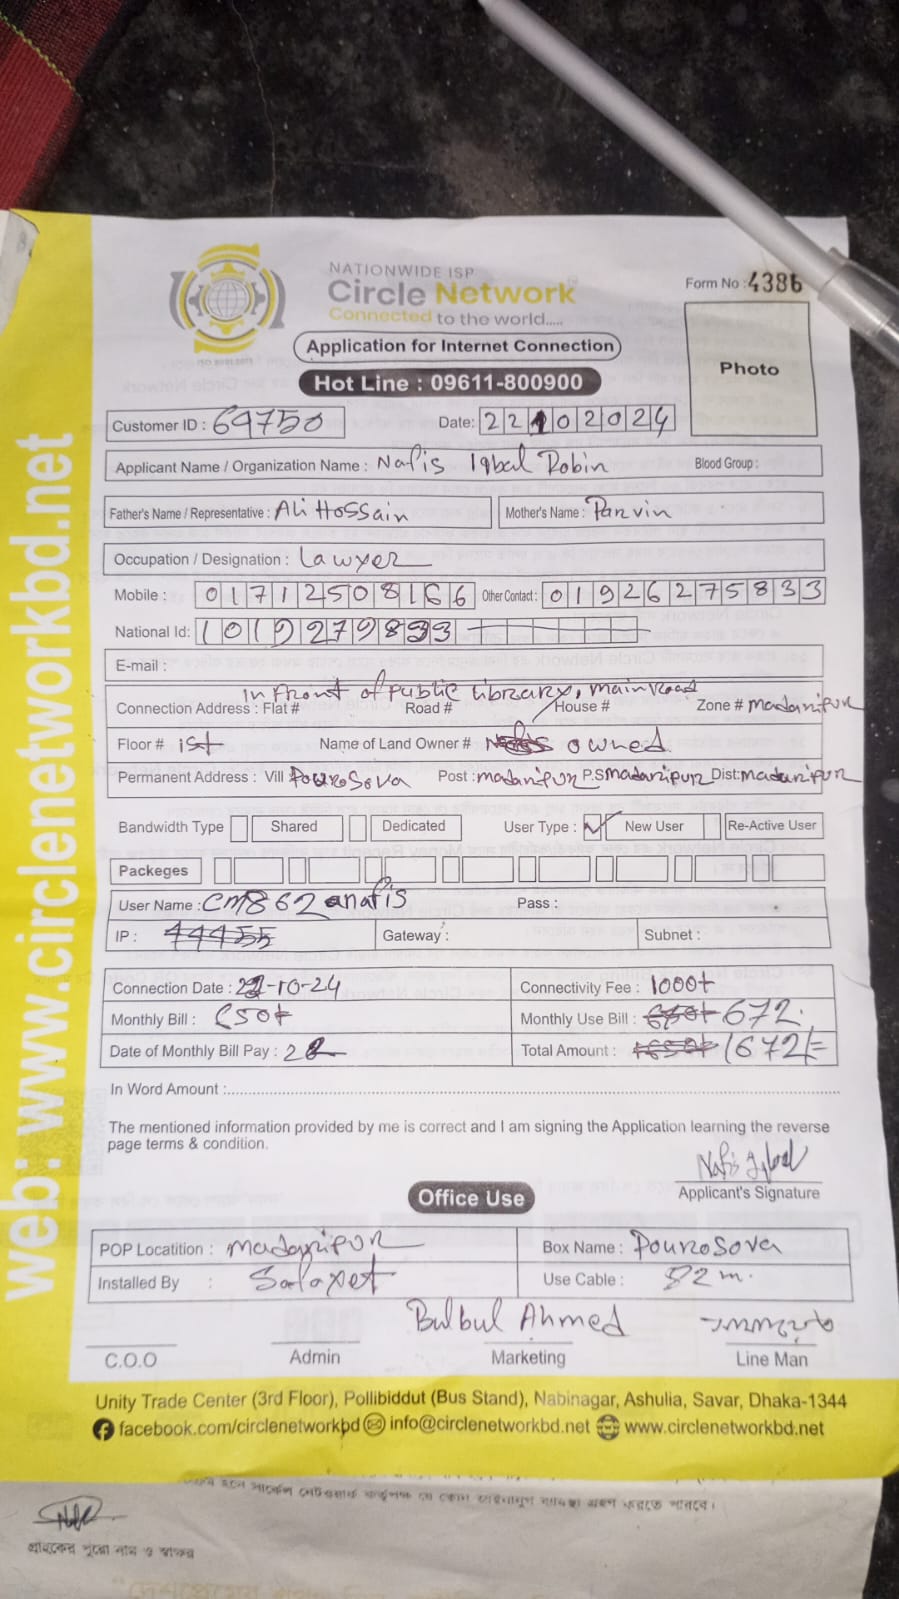 NATIONWIDE ISP
Circle Network
Connected to the world.....
Form No : 4386
Application for Internet Connection
Hot Line : 09611-800900
Photo
web: www.circlenetworkbd.net
Customer ID : 69750 Date: 22102024
Applicant Name / Organization Name : Nafis Iqbal Robin Blood Group :
Father's Name / Representative : Ali Hossain Mother's Name : Parvin
Occupation / Designation : Lawyer
Mobile : 01712508166 Other Contact : 01926275833
National Id: 1019279833
E-mail :
in front of public library, main road
Connection Address : Flat # Road # House # Zone # madaripur
Floor # 1st Name of Land Owner # owned
Permanent Address : Vill PouroSova Post : madaripur P.S madaripur Dist: madaripur
Bandwidth Type Shared Dedicated User Type : New User Re-Active User
Packeges
User Name : CM862anafis Pass :
IP : 44455 Gateway : Subnet :
Connection Date : 22-10-24 Connectivity Fee : 1000t
Monthly Bill : 650t Monthly Use Bill : 672.
Date of Monthly Bill Pay : Total Amount : 1672/=
In Word Amount :
The mentioned information provided by me is correct and I am signing the Application learning the reverse
page terms & condition.
Nafis Iqbal
Applicant's Signature
Office Use
POP Locatition : madaripur Box Name : Pourosova
Installed By : Use Cable : 82 m.
Bulbul Ahmed
C.O.O Admin Marketing Line Man
Unity Trade Center (3rd Floor), Pollibiddut (Bus Stand), Nabinagar, Ashulia, Savar, Dhaka-1344
facebook.com/circlenetworkbd info@circlenetworkbd.net www.circlenetworkbd.net
গ্রাহকের পুরো নাম ও স্বাক্ষর